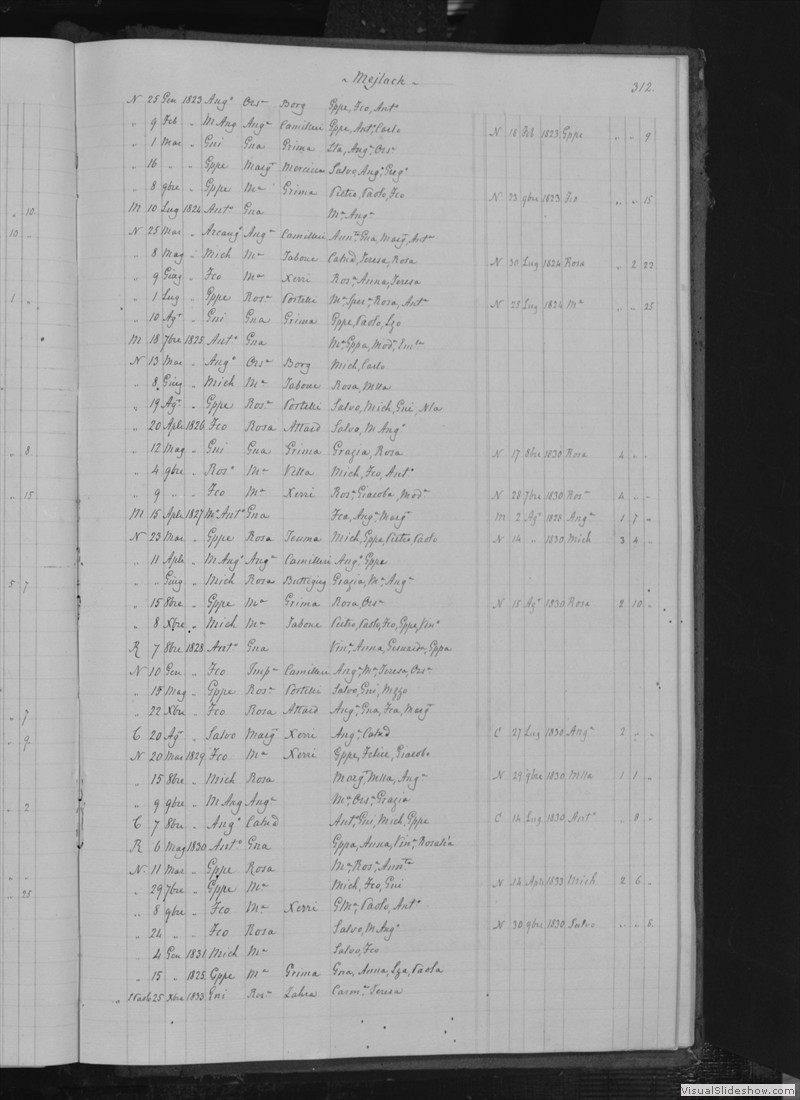 Mejlach
312.
N 25 Gen 1823 Ang° Ors~ Borg Gppe, Fco, Ant~
" 9 Feb " M Ang Ang~ Camilleri Gppe, Ant~, Carlo N 18 Feb 1823 Gppe " " 9
" 1 Mar " Gni Gna Grima Lta, Ang~, Ors~
" 16 " " Gppe Marg~ Salvo, Ang°, Greg°
" 8 9bre " Gppe M~ Grima Pietro, Paolo, Fco N 23 9bre 1823 Fco " " 15
M 10 Lug 1824 Ant° Gna M~ Ang~
N 25 Mar " Arcang° Ang~ Camilleri Ann~, Gna, Marg~, Ant~
" 8 Mag " Mich M~ Tabone Catnd, Teresa, Rosa N 30 Lug 1824 Rosa " 2 22
" 9 Giug " Fco M~ Xerri Ros~, Anna, Teresa
" 1 Lug " Gppe Ros~ Portelli M~, Sper~, Rosa, Ant~ N 28 Lug 1824 M~ " " 25
" 10 Ag° " Gni Gna Grima Gppe, Paolo, Lzo
M 18 7bre 1825 Ant° Gna M~, Gppa, Mod~
N 13 Mar " Ang° Ors~ Borg Mich, Carlo
" 8 Giug " Mich M~ Tabone Rosa, Mlla
" 19 Ag° " Gppe Ros~ Portelli Salvo, Mich, Gni, Nla
" 20 Aple 1826 Fco Rosa Attard Salvo, M Ang°
" 12 Mag " Gni Gna Grima Grazia, Rosa N 17 8bre 1830 Rosa 4 " "
" 4 9bre " Ros° M~ Vella Mich, Fco, Ant~
" 9 " " Fco M~ Xerri Ros~, Giacoba, Mod~ N 28 7bre 1830 Ros~ 4 " "
M 15 Aple 1827 M~ Ant° Gna Fca, Ang~, Marg~ M 2 Ag° 1828 Ang~ 1 7 "
N 23 Mar " Gppe Rosa Touma Mich, Gppe, Pietro, Paolo N 14 " 1830 Mich 3 4 "
" 11 Aple " M Ang° Ang~ Camilleri Ang°, Gppe
" " Giug " Mich Rosa Buttigieg Grazia, M~, Ang~
" 15 8bre " Gppe M~ Grima Rosa, Ors~ N 15 Ag° 1830 Rosa 2 10 "
" 8 Xbre " Mich M~ Tabone Pietro, Paolo, Fco, Gppe, Vin°
R 7 8bre 1828 Ant° Gna Vin~, Anna, Gppa
N 10 Gen " Fco Imp~ Camilleri Ang~, M~, Teresa, Ors~
" 15 Mag " Gppe Ros~ Portelli Salvo, Gni, Nizzo
" 22 Xbre " Fco Rosa Attard Ang~, Gna, Fca, Marg~
C 20 Ag° " Salvo Marg~ Xerri Ang~, Catnd C 27 Lug 1830 Ang~ 2 " "
N 20 Mar 1829 Fco M~ Xerri Gppe, Felice, Giacobo
" 15 8bre " Mich Rosa Marg~, Mlla, Ang~ N 29 9bre 1830 Mlla 1 1 "
" 9 9bre " M Ang Ang~ M~, Ors~, Grazia
C 7 8bre " Ang° Catnd Ant°, Gni, Mich, Gppe C 14 Lug 1830 Ant° " 8 "
R 6 Mag 1830 Ant° Gna Gppa, Anna, Vin~, Rosalia
N 11 Mar " Gppe Rosa M~, Ros~, Ann~
" 29 7bre " Gppe M~ Mich, Fco, Gni N 14 Aple 1833 Mich 2 6 "
" 8 9bre " Fco M~ Xerri GM~, Paolo, Ant°
" 24 " " Fco Rosa Salvo, M Ang° N 30 9bre 1830 Salvo " " 6
" 4 Gen 1831 Mich M~ Salvo, Fco
" 15 " 1825 Gppe M~ Grima Gna, Anna, Lza, Paola
25 Xbre 1833 Gni Ros~ Zahra Carm~, Teresa
" 10
10 "
1 "
" 8
" 15
5 7
" 7
" 9.
" 2
" 25
VisualSlideshow.com